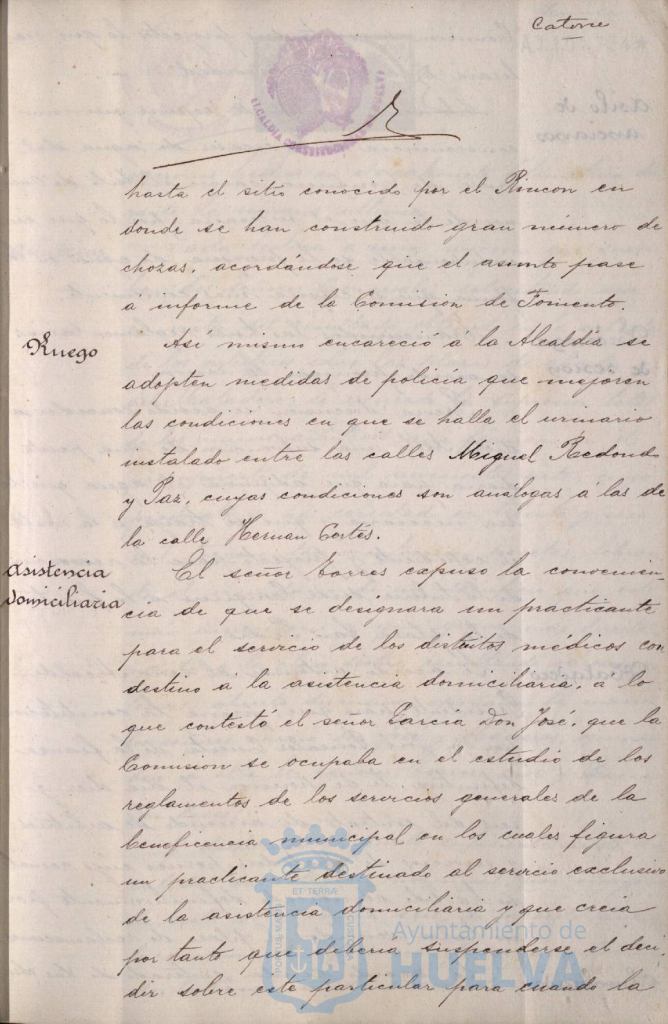 Catorce
hasta el sitio conocido por el Rincon en
donde se han construido gran número de
chozas, acordándose que el asunto pase
á informe de la Comision de Fomento.
Ruego
Así mismo encareció á la Alcaldía se
adopten medidas de policía que mejoren
las condiciones en que se halla el urinario
instalado entre las calles Miguel Redondo
y Paz, cuyas condiciones son análogas á las de
la calle Hernan Cortés.
Asistencia
domiciliaria
El señor Torres expuso la convenien-
cia de que se designara un practicante
para el servicio de los distritos médicos con
destino á la asistencia domiciliaria, a lo
que contestó el señor García Don José, que la
Comision se ocupaba en el estudio de los
reglamentos de los servicios generales de la
beneficencia municipal en los cuales figura
un practicante destinado al servicio exclusivo
de la asistencia domiciliaria y que creia
por tanto que deberia suspenderse el deci-
dir sobre este particular para cuando la
Ayuntamiento de
HUELVA